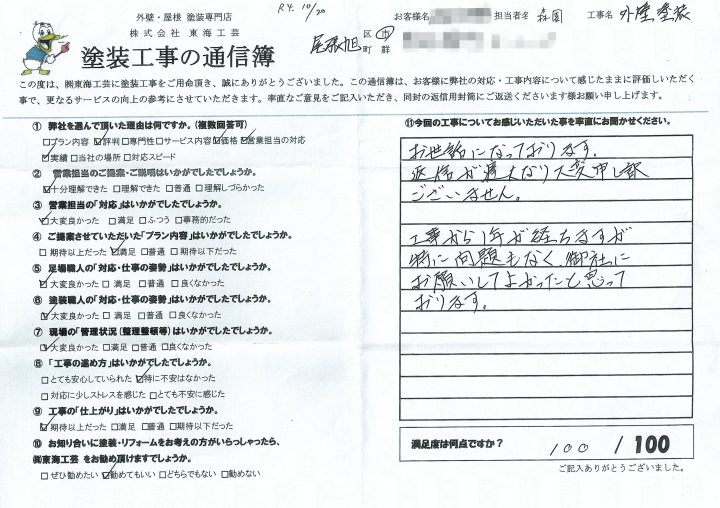 外壁・屋根 塗装専門店
株式会社 東海工芸
塗装工事の通信簿
R4. 10/20
尾張旭 区 市 町 群
お客様名
担当者名 森園
工事名 外壁塗装
この度は、㈱東海工芸に塗装工事をご用命頂き、誠にありがとうございました。この通信簿は、お客様に弊社の対応・工事内容について感じたままに評価しいただく
事で、更なるサービスの向上の参考にさせていただきます。率直なご意見をご記入いただき、同封の返信用封筒にご返送くださいます様お願い申し上げます。
① 弊社を選んで頂いた理由は何ですか。(複数回答可)
□プラン内容 ☑評判 □専門性 □サービス内容 ☑価格 ☑営業担当の対応
☑実績 □当社の場所 □対応スピード
② 営業担当のご提案・ご説明はいかがでしたでしょうか。
☑十分理解できた □理解できた □普通 □理解しづらかった
③ 営業担当の「対応」はいかがでしたでしょうか。
☑大変良かった □満足 □ふつう □事務的だった
④ ご提案させていただいた「プラン内容」はいかがでしたでしょうか。
□期待以上だった ☑満足 □普通 □期待以下だった
⑤ 足場職人の「対応・仕事の姿勢」はいかがでしたでしょうか。
☑大変良かった □満足 □普通 □良くなかった
⑥ 塗装職人の「対応・仕事の姿勢」はいかがでしたでしょうか。
☑大変良かった □満足 □普通 □良くなかった
⑦ 現場の「管理状況(整理整頓等)はいかがでしたでしょうか。
☑大変良かった □満足 □普通 □良くなかった
⑧ 「工事の進め方」はいかがでしたでしょうか。
□とても安心していられた ☑特に不安はなかった
□対応に少しストレスを感じた □とても不安に感じた
⑨ 工事の「仕上がり」はいかがでしたでしょうか。
☑期待以上だった □満足 □普通 □期待以下だった
⑩ お知り合いに塗装・リフォームをお考えの方がいらっしゃったら、
㈱東海工芸 をお勧め頂けますでしょうか。
□ぜひ勧めたい ☑勧めてもいい □どちらでもない □勧めない
⑪今回の工事についてお感じいただいた事を率直にお聞かせください。
お世話になっております。
返信が遅くなり大変申し訳
ございません。
工事から1年が経ちますが
特に問題もなく、御社に
お願いしてよかったと思って
おります。
満足度は何点ですか? 100 / 100
ご記入ありがとうございました。